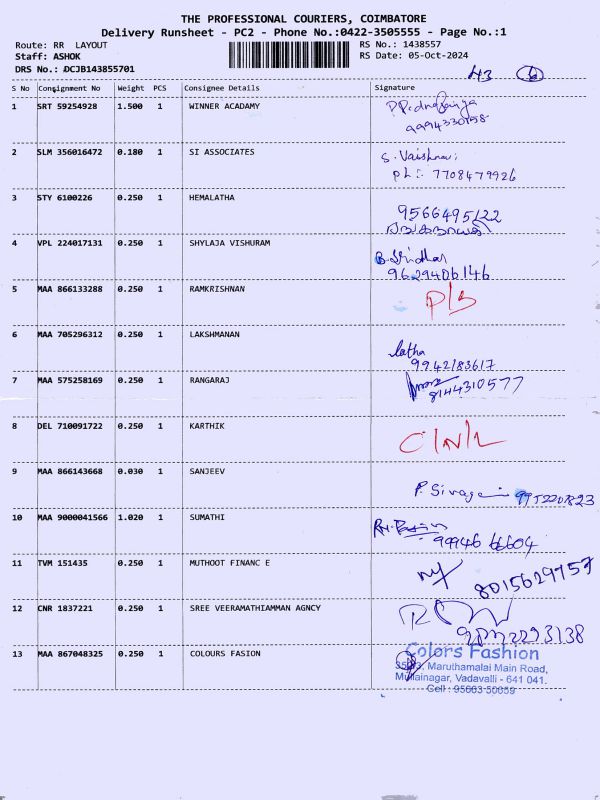 THE PROFESSIONAL COURIERS, COIMBATORE
Delivery Runsheet - PC2 - Phone No.:0422-3505555 - Page No.:1
Route: RR LAYOUT
RS No.: 1438557
Staff: ASHOK
RS Date: 05-Oct-2024
DRS No.: DCJB143855701
43 6
S No Consignment No Weight PCS Consignee Details Signature
1 SRT 59254928 1.500 1 WINNER ACADAMY
2 SLM 356016472 0.180 1 SI ASSOCIATES S. Vaishnavi
ph: 7708479926
3 STY 6100226 0.250 1 HEMALATHA 9566495122
4 VPL 224017131 0.250 1 SHYLAJA VISHURAM B. Sridhar
9629406146
5 MAA 866133288 0.250 1 RAMKRISHNAN P/S
6 MAA 705296312 0.250 1 LAKSHMANAN latha
9942183617
7 MAA 575258169 0.250 1 RANGARAJ 8144310577
8 DEL 710091722 0.250 1 KARTHIK C/N/L
9 MAA 866143668 0.030 1 SANJEEV P. Sivaga
10 MAA 9000041566 1.020 1 SUMATHI 99946 66604
11 TVM 151435 0.250 1 MUTHOOT FINANC E 8015629957
12 CNR 1837221 0.250 1 SREE VEERAMATHIAMMAN AGNCY
13 MAA 867048325 0.250 1 COLOURS FASION Colors Fashion
Maruthamalai Main Road,
Mullainagar, Vadavalli - 641 041.
Cell : 95663 50059